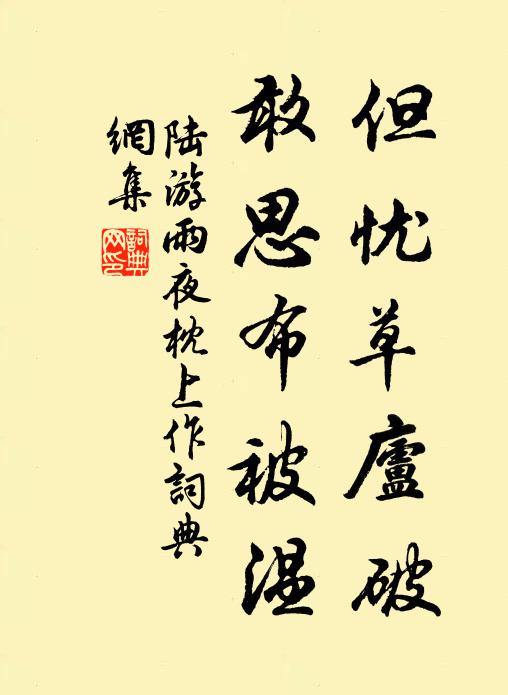 但忧草廬破
敢思布被温
陆游雨夜枕上作詞典
網集
詞典
网印